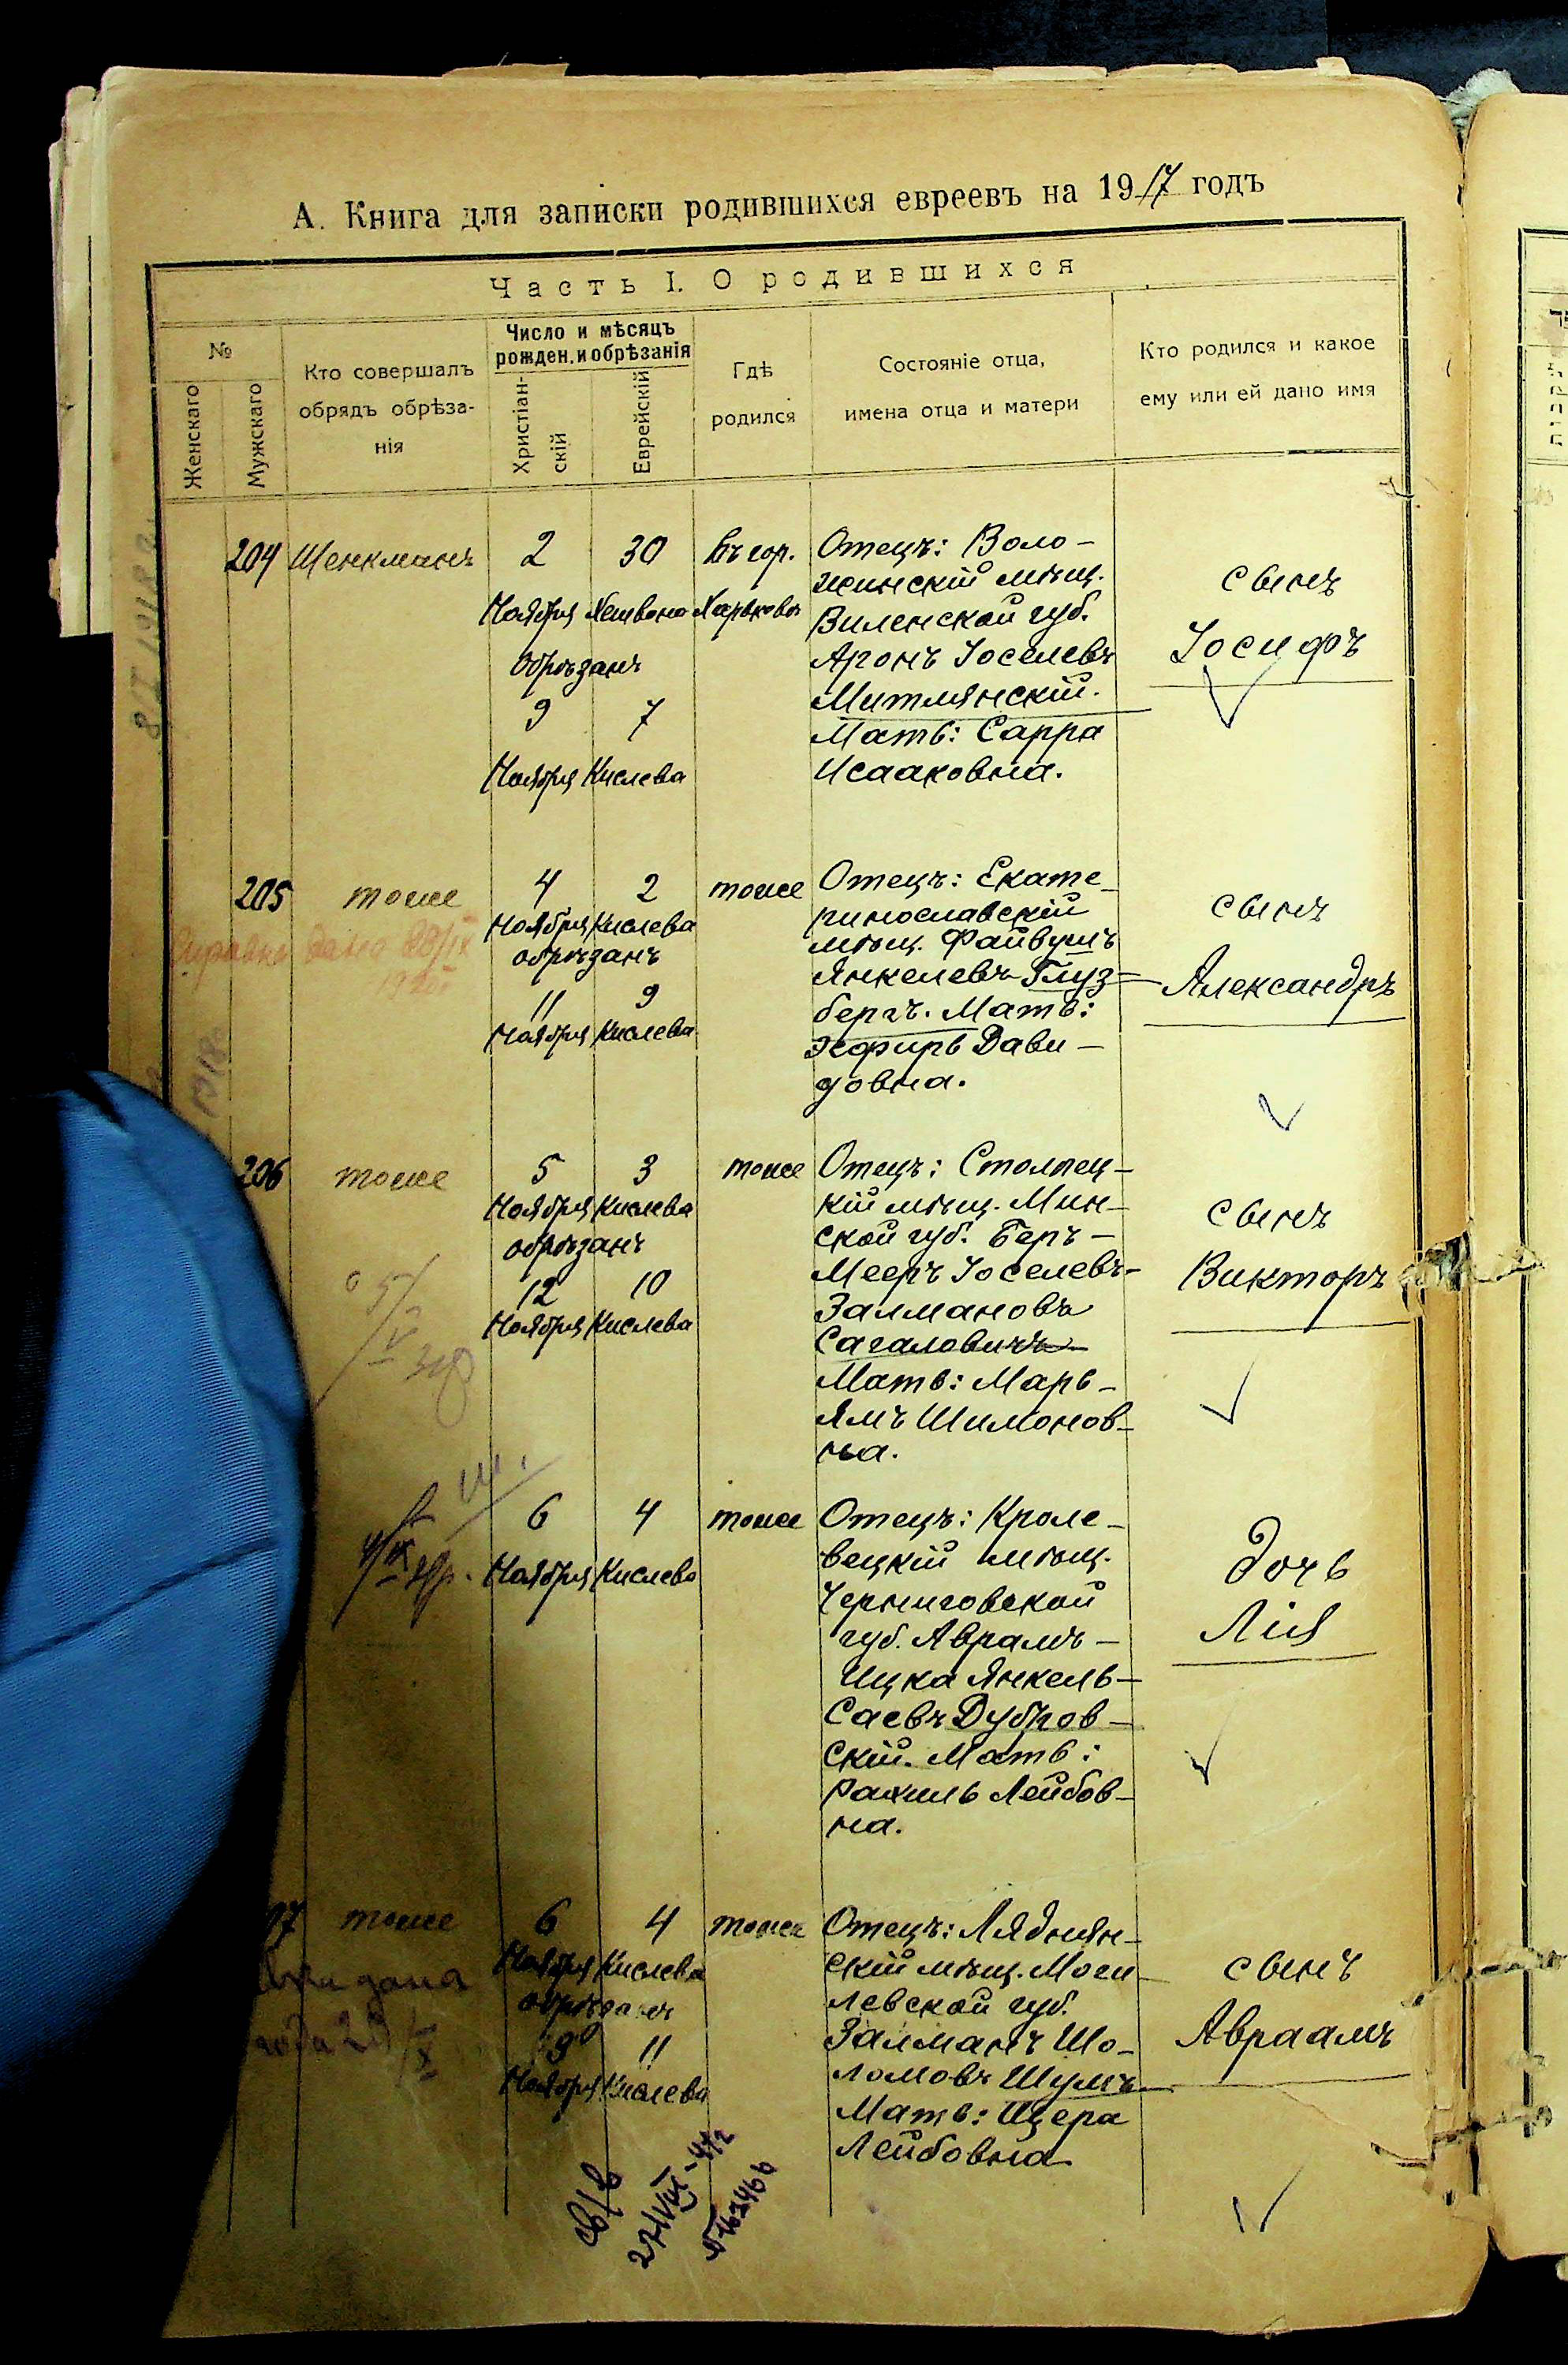 А. Книга для записки родившихся евреевъ на 1917 годъ
Часть I. О родившихся
№
Женскаго
Мужскаго
Кто совершалъ
обрядъ обрѣза-
нія
Число и мѣсяцъ
рожден. и обрѣзанія
Христіан-
скій
Еврейскій
Гдѣ
родился
Состояніе отца,
имена отца и матери
Кто родился и какое
ему или ей дано имя
204 Шенкманъ
2 30
Ноября Хешвона
Обрѣзанъ
9 7
Ноября Кислева
въ гор.
Харьковѣ
Отецъ: Воло-
жинскій мѣщ.
Виленской губ.
Аронъ Іоселевъ
Митлянскій.
Мать: Сарра
Исааковна.
сынъ
Іосифъ
205 тоже
Справка дана 20/IX
4 2
Ноября Кислева
обрѣзанъ
11 9
Ноября Кислева
тоже
Отецъ: Екате-
ринославскій
мѣщ. Файвушъ
Янкелевъ Глуз-
бергъ. Мать:
Эсфирь Дави-
довна.
сынъ
Александръ
206 тоже
5 3
Ноября Кислева
обрѣзанъ
12 10
Ноября Кислева
тоже
Отецъ: Столпец-
кій мѣщ. Мин-
ской губ. Беръ-
Мееръ Іоселевъ-
Залмановъ
Сагаловичъ
Мать: Марь-
ямъ Шимонов-
на.
сынъ
Викторъ
6 4
Ноября Кислева
тоже
Отецъ: Кроле-
вецкій мѣщ.
Черниговской
губ. Аврамъ-
Ицка Янкель-
Саевъ Дубров-
скій. Мать:
Рахиль Лейбов-
на.
дочь
Лія
7 тоже
дана
6 4
Ноября Кислева
обрѣзанъ
11
Ноября Кислева
тоже
Отецъ: Ляднян-
скій мѣщ. Моги-
левской губ.
Залманъ Шо-
ломовъ Шумъ
Мать: Щера
Лейбовна
сынъ
Авраамъ